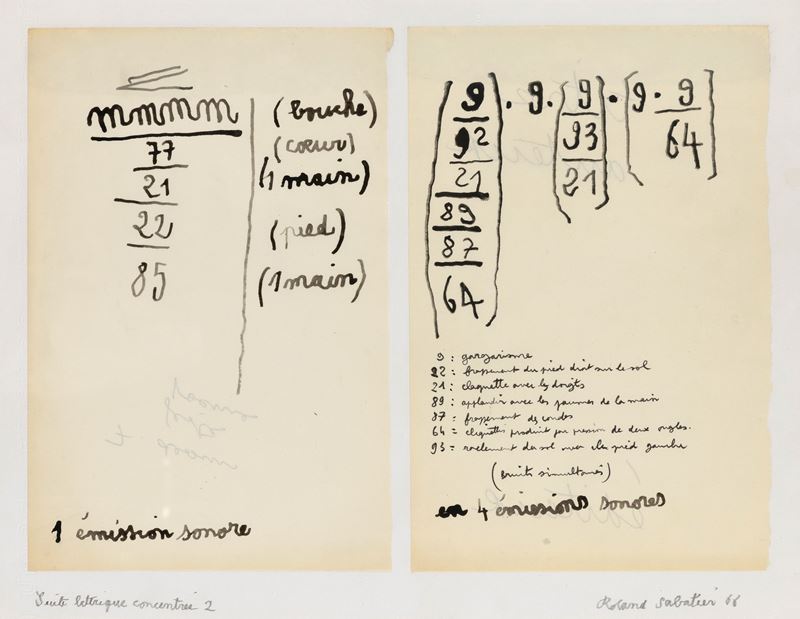 mmmm (bouche)
77 (cœur)
21 (1 main)
22 (pied)
85 (1 main)
1 émission sonore
9 . 9 . 9 . 9 . 9
92 93 64
21 21
89
87
64
9 : gargarisme
22 : frapement du pied droit sur le sol
21 : claquette avec les doigts
89 : applaudir avec les paumes de la main
87 : frappement de coudes
64 = cliquettis produit par pression de deux ongles.
93 = raclement du sol avec le pied gauche
(bruits simultanés)
en 4 émissions sonores
Suite lettrique concentrée 2
Roland Sabatier 66